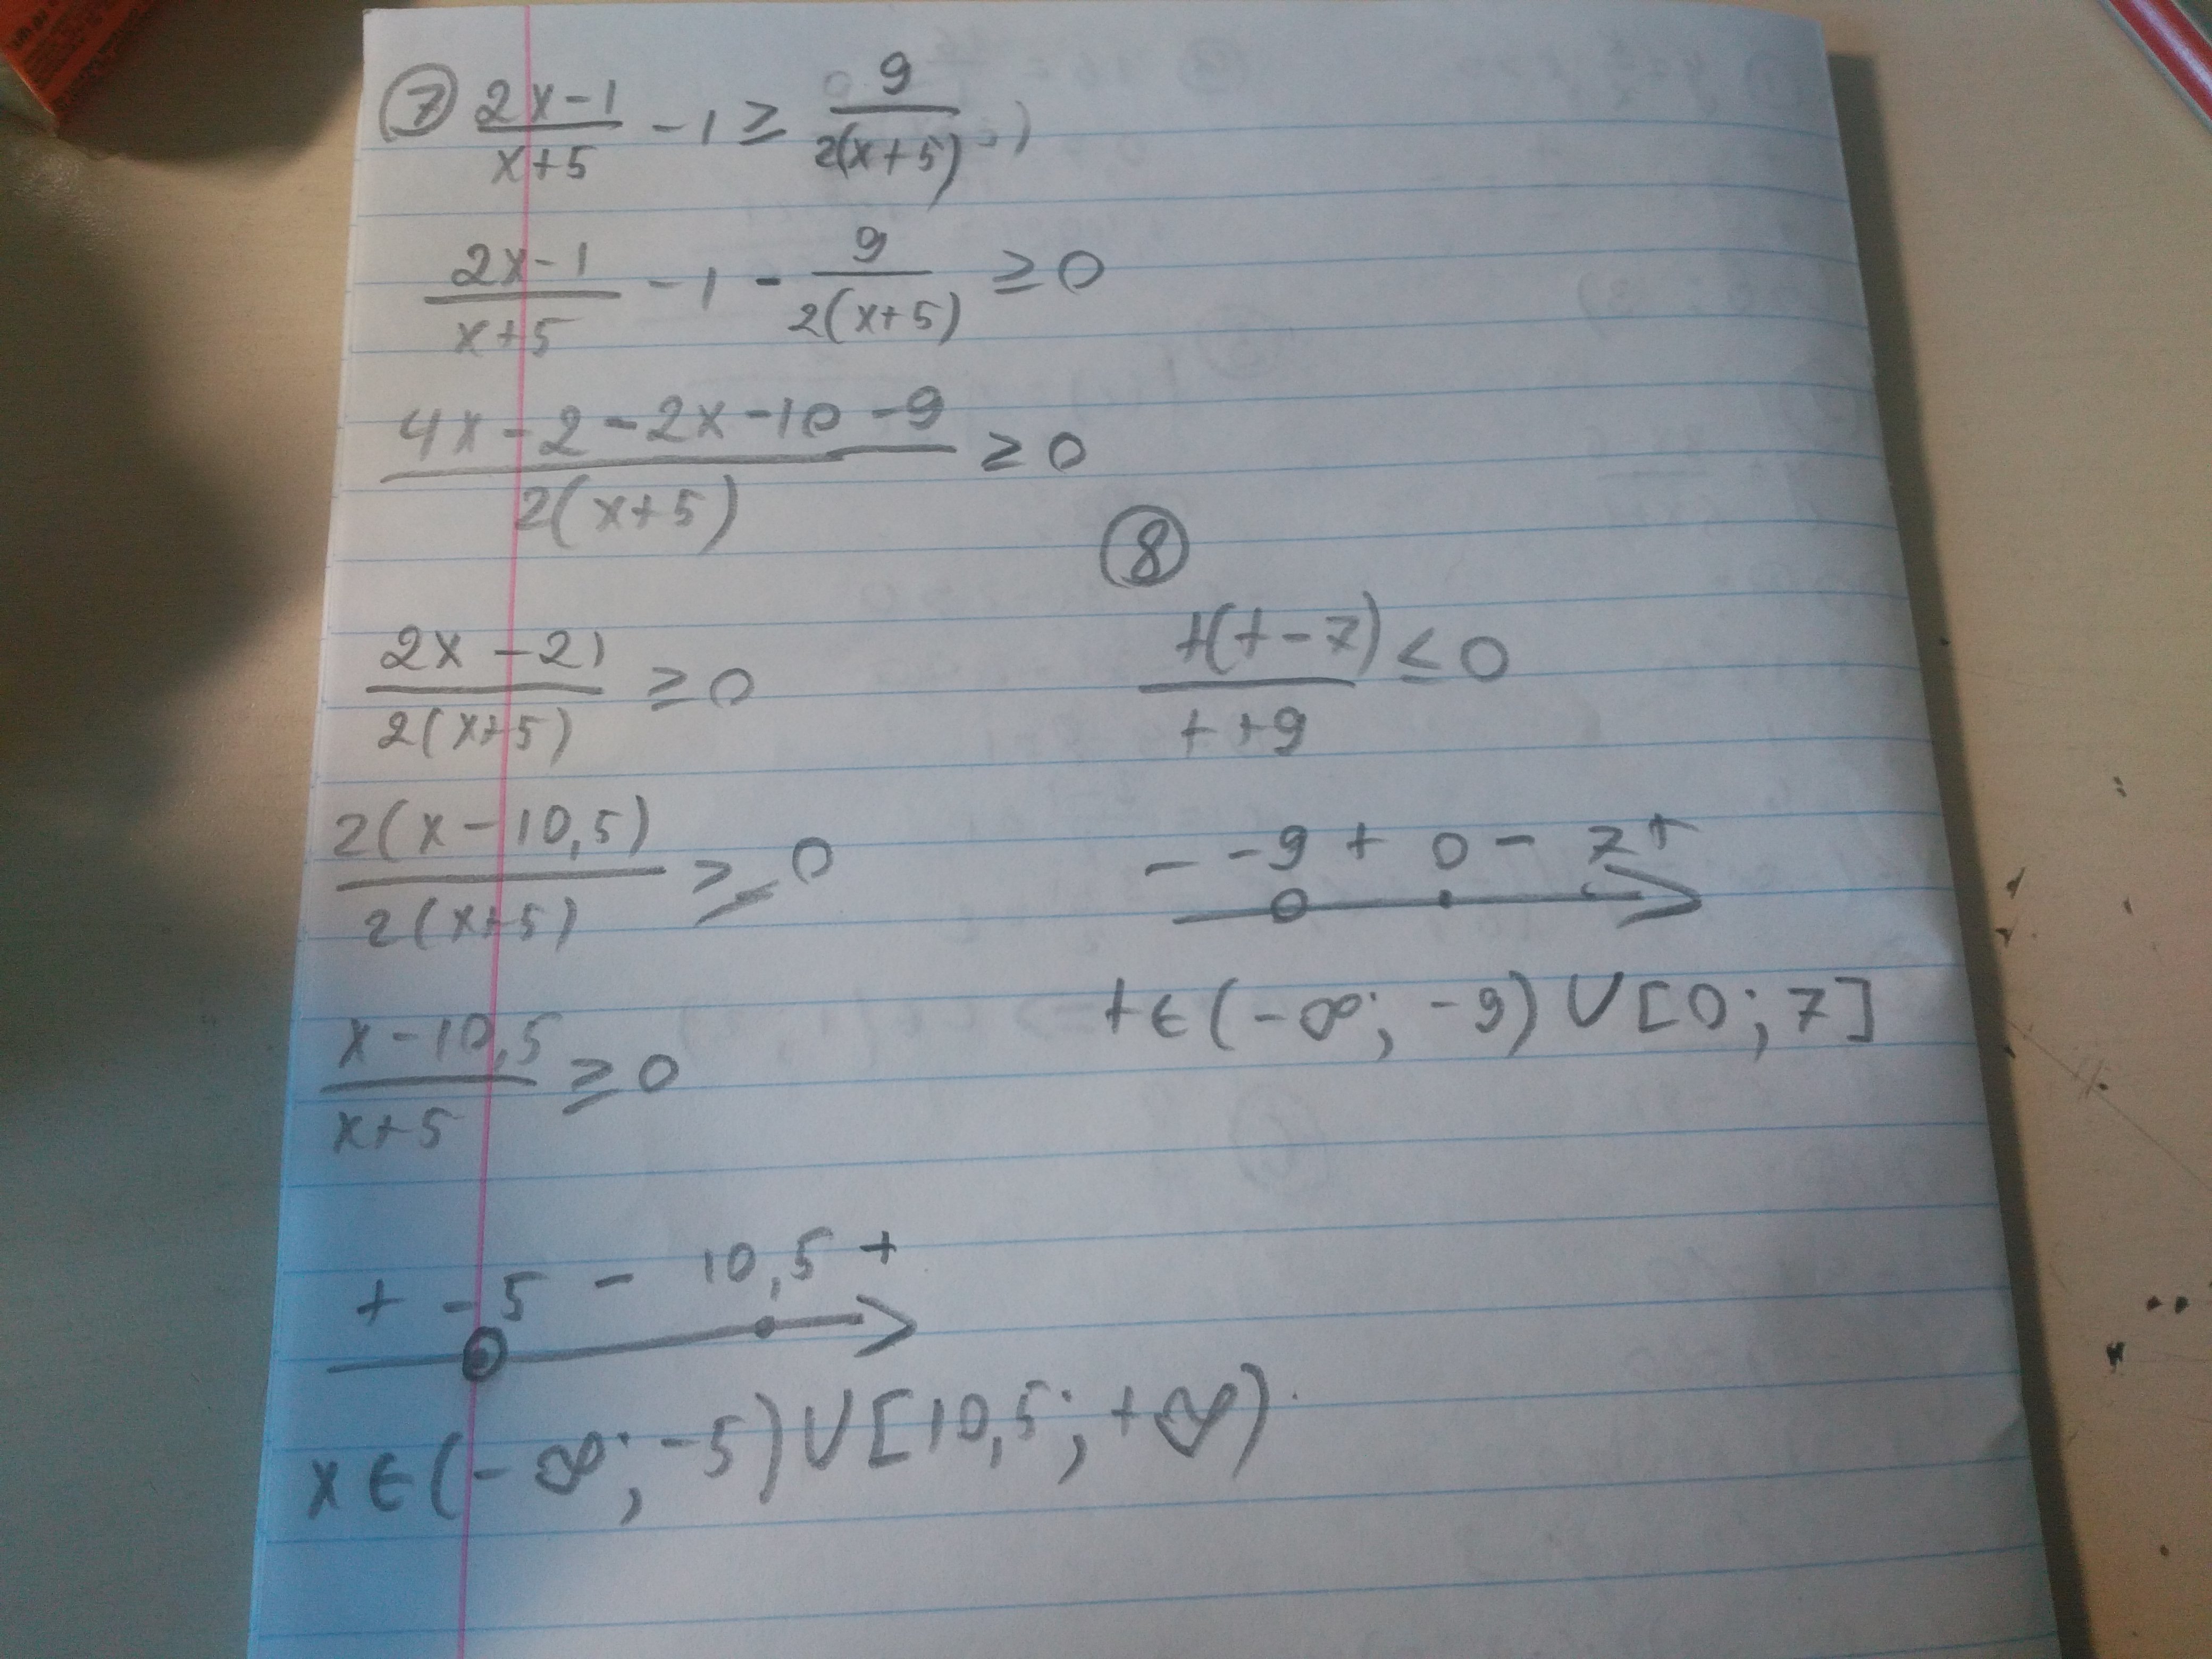 ⑦ (2x-1)/(x+5) - 1 ≥ 9/(2(x+5))
(2x-1)/(x+5) - 1 - 9/(2(x+5)) ≥ 0
(4x-2-2x-10-9)/(2(x+5)) ≥ 0
(2x-21)/(2(x+5)) ≥ 0
(2(x-10,5))/(2(x+5)) ≥ 0
(x-10,5)/(x+5) ≥ 0
+ -5 - 10,5 +
x ∈ (-∞; -5) ∪ [10,5; +∞)
⑧
t(t-7)/(t+9) ≤ 0
- -9 + 0 - 7 +
t ∈ (-∞; -9) ∪ [0; 7]